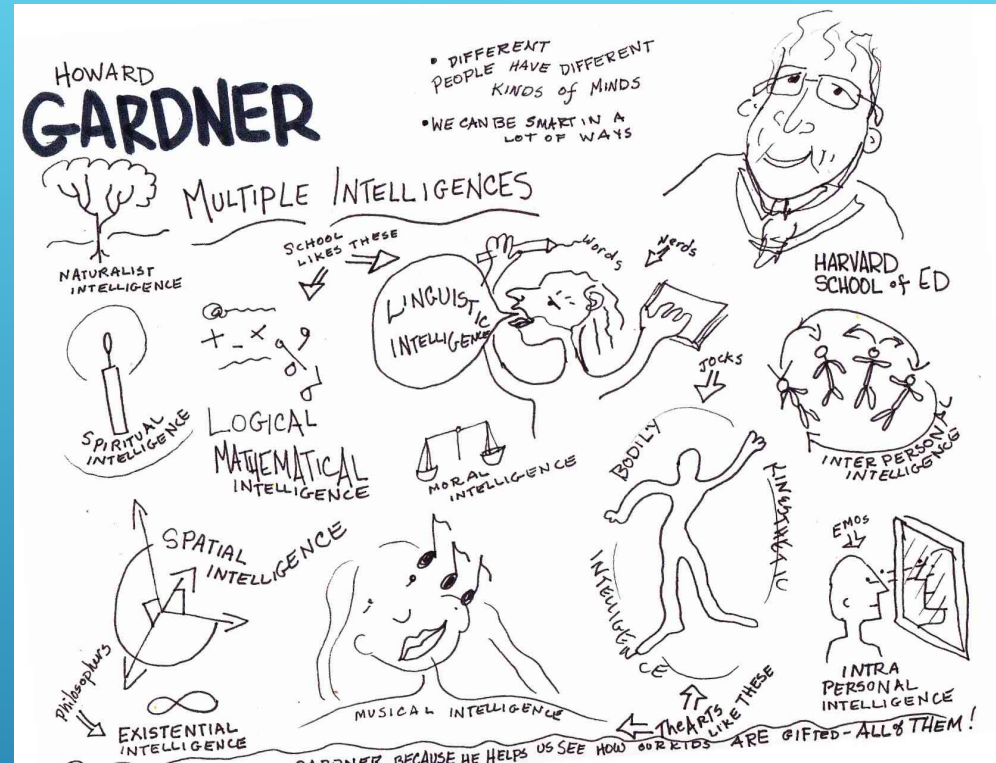 HOWARD
GARDNER
• DIFFERENT
PEOPLE HAVE DIFFERENT
KINDS of MINDS
• WE CAN BE SMART IN A
LOT OF WAYS
MULTIPLE INTELLIGENCES
NATURALIST
INTELLIGENCE
SCHOOL
LIKES THESE
Words
Nerds
HARVARD
SCHOOL of ED
LINGUISTIC
INTELLIGENCE
@
+ - ×
SPIRITUAL
INTELLIGENCE
LOGICAL
MATHEMATICAL
INTELLIGENCE
MORAL
INTELLIGENCE
JOCKS
BODILY
KINESTHETIC
INTELLIGENCE
INTERPERSONAL
INTELLIGENCE
SPATIAL
INTELLIGENCE
EMOS
Philosophers
EXISTENTIAL
INTELLIGENCE
MUSICAL INTELLIGENCE
The ARTS
LIKE THESE
INTRA
PERSONAL
INTELLIGENCE
GARDNER BECAUSE HE HELPS US SEE HOW OUR KIDS ARE GIFTED-ALL of THEM!